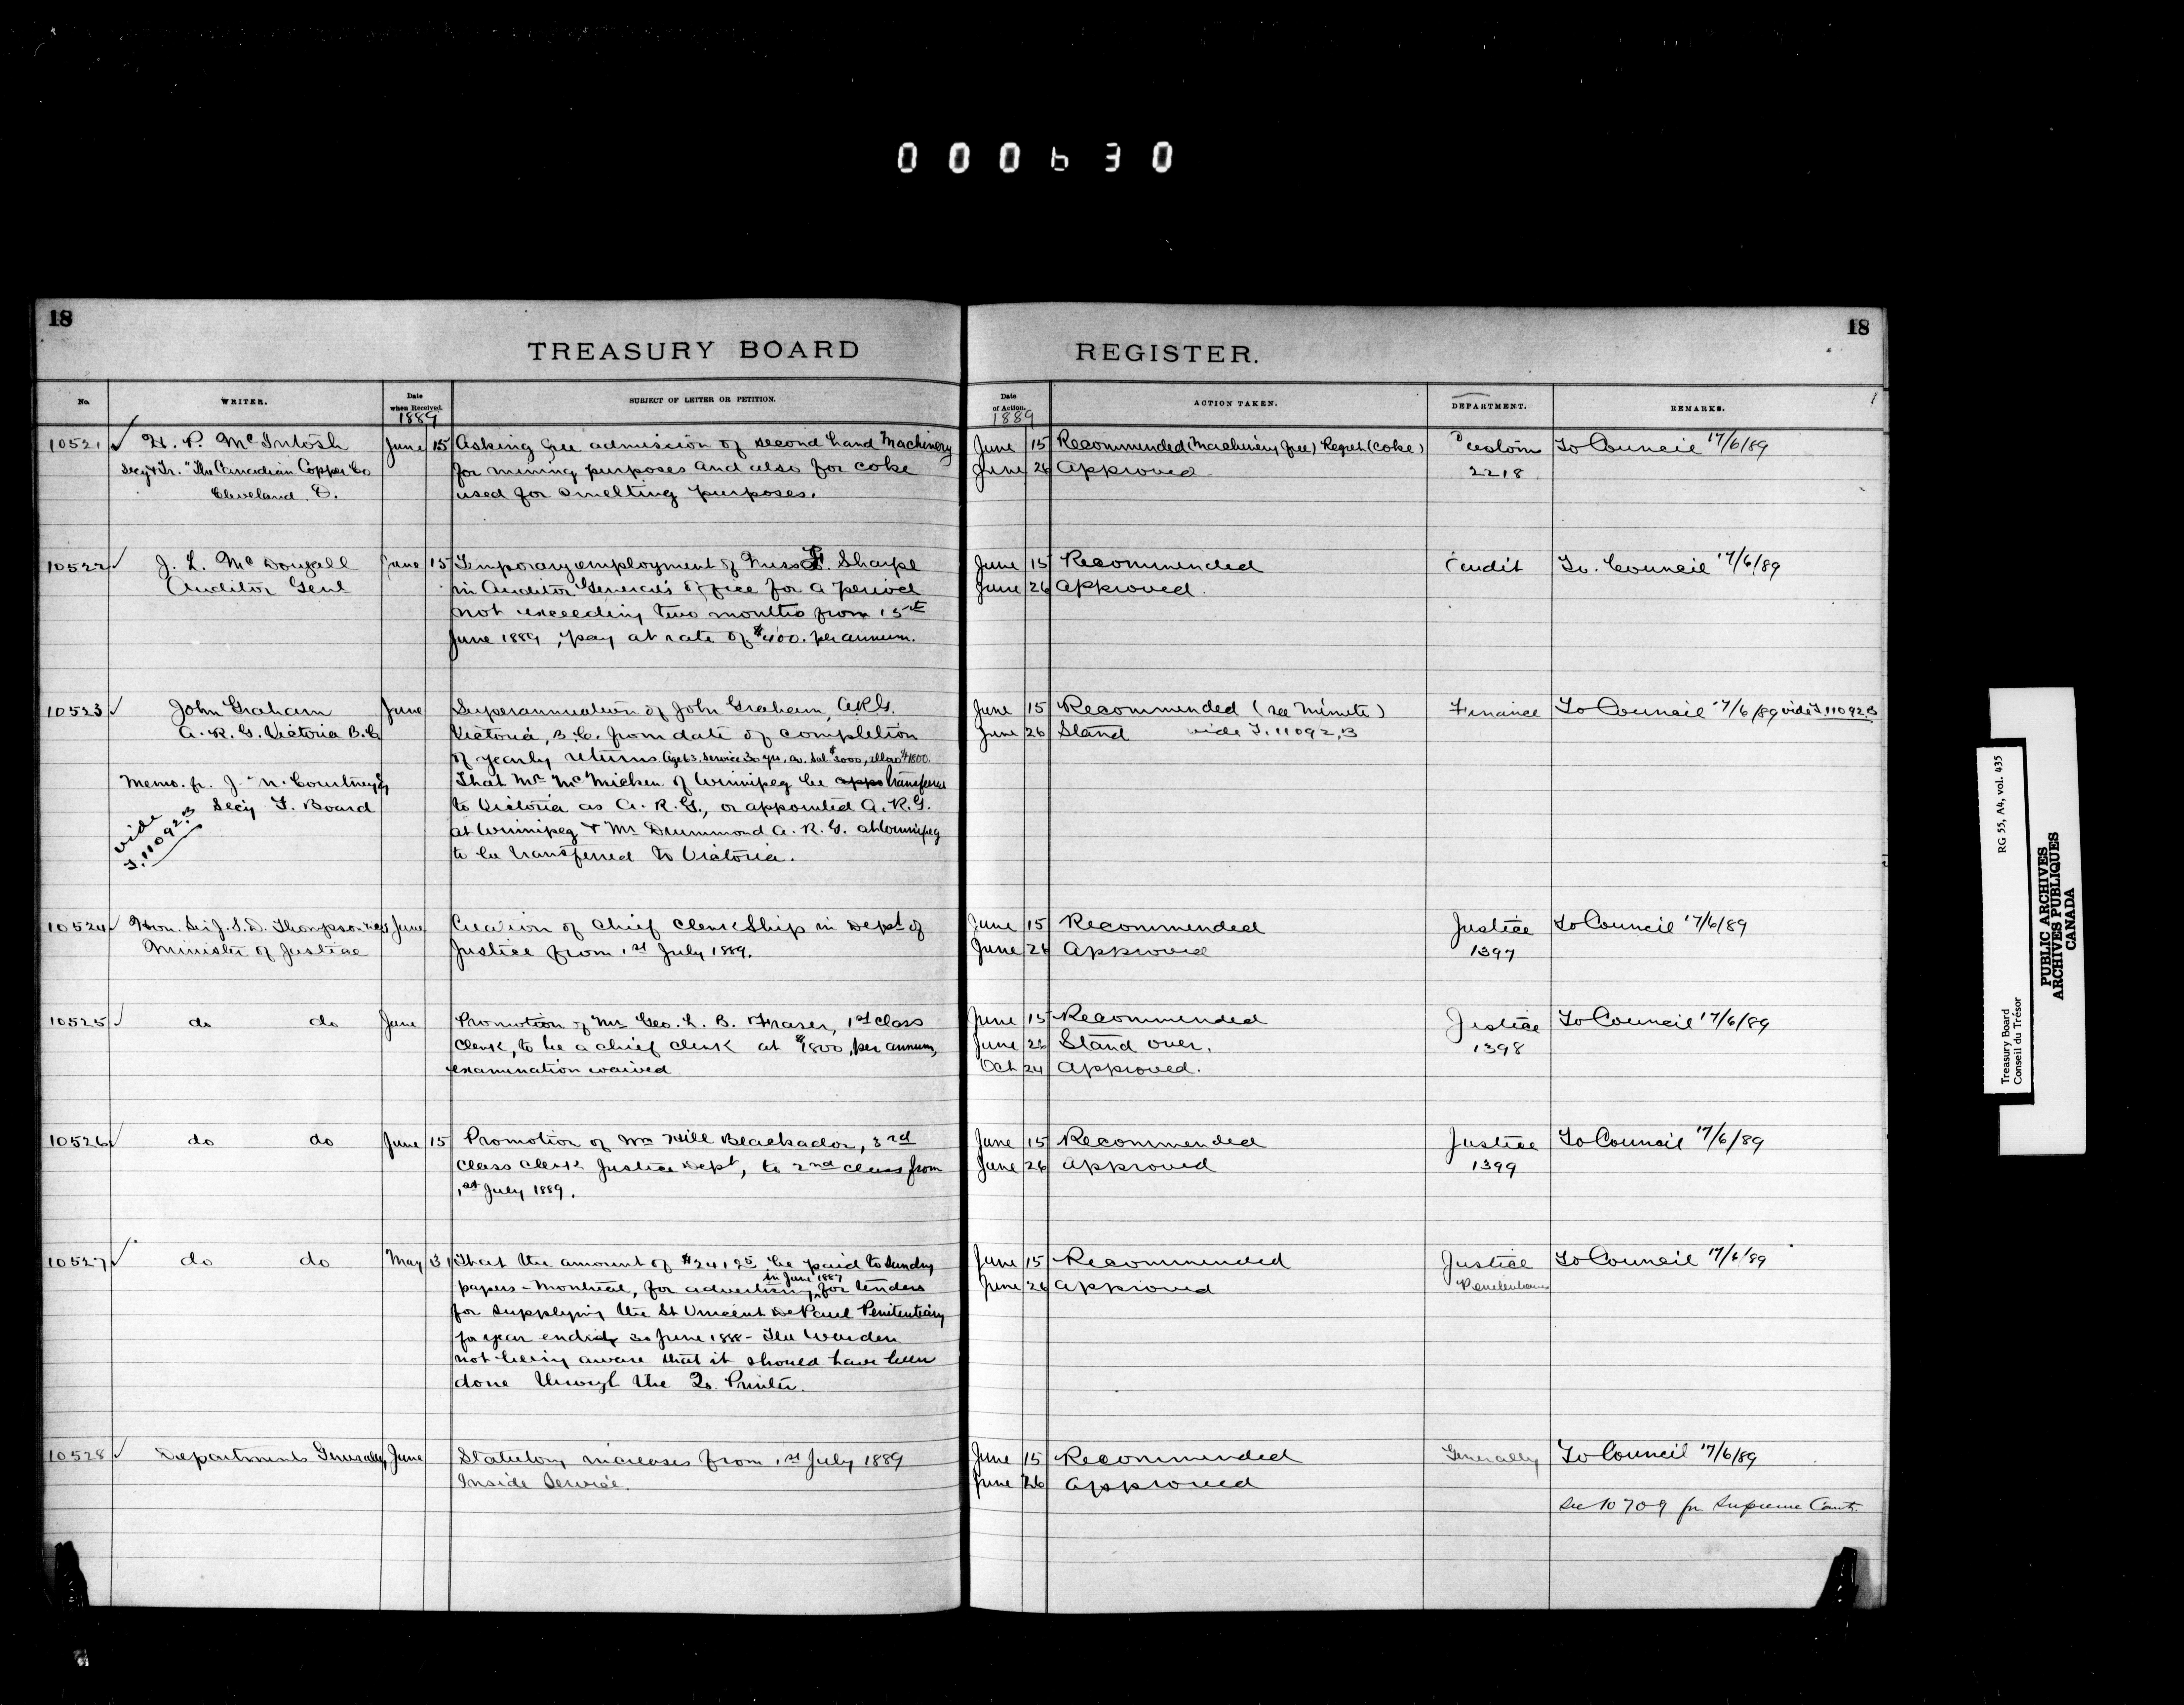 000630
18
18
TREASURY BOARD
REGISTER.
No.
WRITER.
Date when Received.
SUBJECT OF LETTER OR PETITION.
Date of Action.
ACTION TAKEN.
DEPARTMENT.
REMARKS.
1889
1889
10521 H. P. McIntosh June 15 Asking free admission of second hand Machinery June 15 Recommended (Machinery free) Regret (Coke) Customs To Council 17/6/89
Secy & Tr. "The Canadian Copper Co for mining purposes and also for coke June 26 Approved 2218
Cleveland O. used for smelting purposes.
10522 J. L. McDougall June 15 Temporary employment of Miss F. Sharpe June 15 Recommended Audit To Council 17/6/89
Auditor Genl in Auditor General's Office for a period June 26 Approved.
not exceeding two months from 15th
June 1889, pay at rate of $400. per annum.
10523 John Graham June Superannuation of John Graham, A.R.G. June 15 Recommended (see Minute) Finance To Council 17/6/89 vide T.11092.B
A. R. G. Victoria B.C. Victoria, B.C. from date of completion June 26 Stand vide T.11092.B
of yearly returns. Age 63. service 30 yrs. av. Sal. $3000, allow $1800.
Memo. fr. J. M. Courtney Esq That Mr McMicken of Winnipeg be transferred
Secy T. Board to Victoria as A. R. G., or appointed A. R. G.
vide T.11092.B at Winnipeg & Mr Drummond A. R. G. at Winnipeg
to be transferred to Victoria.
10524 Hon. Sir J. S. D. Thompson June Creation of Chief Clerkship in Dept of June 15 Recommended Justice To Council 17/6/89
Minister of Justice Justice from 1st July 1889. June 26 Approved 1397
10525 do do June Promotion of Mr Geo. L. B. Fraser, 1st Class June 15 Recommended Justice To Council 17/6/89
Clerk, to be a chief clerk at $1800, per annum, June 26 Stand over. 1398
examination waived Oct 24 Approved.
10526 do do June 15 Promotion of Wm Hill Blackador, 3rd June 15 Recommended Justice To Council 17/6/89
Class Clerk Justice Dept, to 2nd class from June 26 Approved 1399
1st July 1889.
10527 do do May 31 That the amount of be paid to Sundry June 15 Recommended Justice To Council 17/6/89
in June 1887
papers - Montreal, for advertising for tenders June 26 Approved Penitentiaries
for supplying the St Vincent De Paul Penitentiary
for year ended 30 June 1888 - The Warden
not being aware that it should have been
done through the Qs. Printer.
10528 Departments Generally June Statutory increases from 1st July 1889 June 15 Recommended Generally To Council 17/6/89
Inside Service. June 26 Approved
See 10709 for Supreme Court.
Treasury Board
Conseil du Trésor
RG 55, A4, vol. 435
PUBLIC ARCHIVES
ARCHIVES PUBLIQUES
CANADA